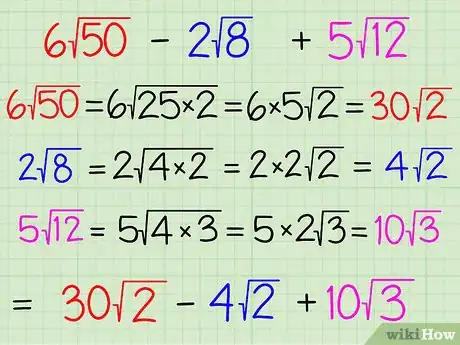 6√50 - 2√8 + 5√12
6√50 = 6√25×2 = 6×5√2 = 30√2
2√8 = 2√4×2 = 2×2√2 = 4√2
5√12 = 5√4×3 = 5×2√3 = 10√3
= 30√2 - 4√2 + 10√3
wikiHow